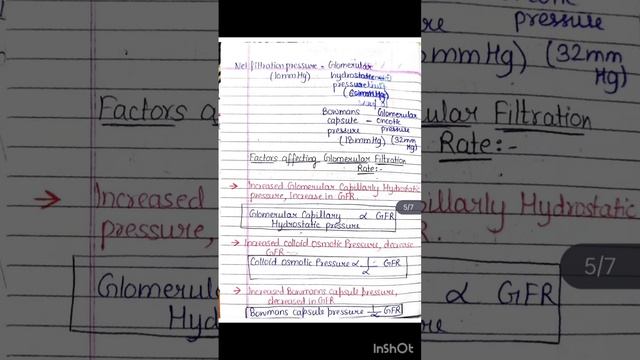 Net filtration pressure = Glomerular
(10mmHg) hydrostatic
pressure
(60mmHg)
Bowmans Glomerular
capsule - oncotic
pressure pressure
(18mmHg) (32mm
Hg)
Factors affecting Glomerular Filtration
Rate:-
→ Increased Glomerular Capillarly Hydrostatic
pressure, Increase in GFR.
Glomerular Capillary ∝ GFR
Hydrostatic pressure
→ Increased colloid osmotic Pressure, decrease
GFR
Colloid osmotic Pressure ∝ 1/∝ GFR
→ Increased Bowmans capsule pressure,
decreased in GFR
Bowmans capsule pressure 1/∝ GFR
5/7
pressure
mmHg) (32mm
Hg)
Factors a
ular Filtration
Rate:-
→ Increased
pillarly Hydrostatic
pressure,
R.
Glomerul
∝ GFR
Hyd
ure
5/7
InShOt